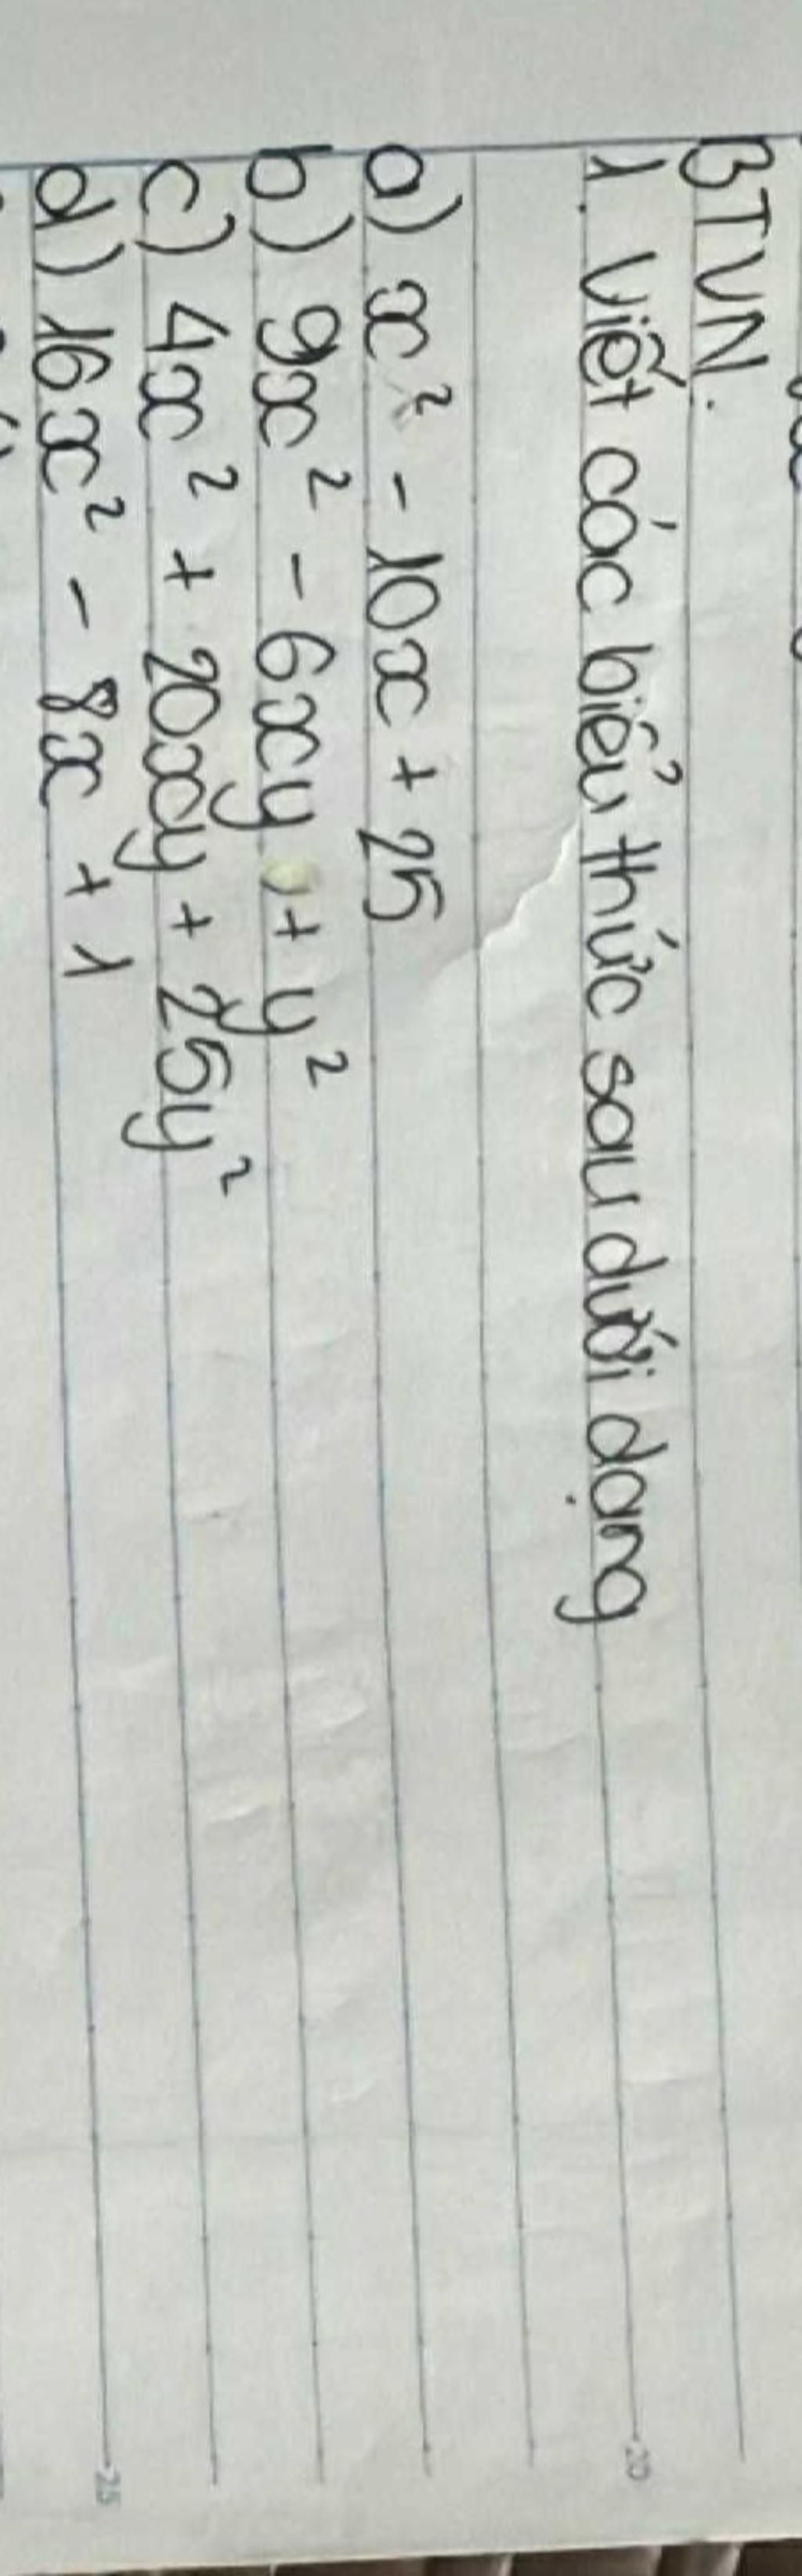 BTVN.
1. Viết các biểu thức sau dưới dạng
a) x² - 10x + 25
b) 9x² - 6xy + y²
c) 4x² + 20xy + 25y²
d) 16x² - 8x + 1
20
25